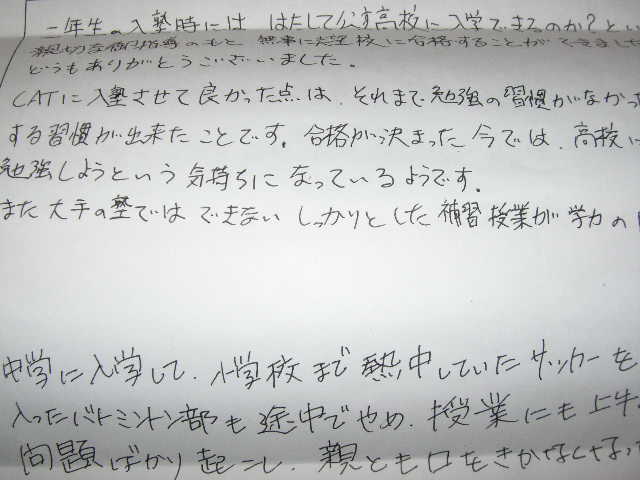 二年生の入塾時には はたして公立高校に入学できるのか?とい
親切な御指導のもと 無事に志望校に合格することができました
どうもありがとうございました。
CATに入塾させて良かった点は、それまで勉強の習慣がなかった
する習慣が出来たことです。合格が決まった今では、高校に
勉強しようという気持ちになっているようです。
また大手の塾ではできない しっかりとした補習授業が学力の
中学に入学して、小学校まで熱中していたサッカーを
入ったバトミントン部も途中でやめ、授業にも
問題ばかり起こし、親とも口をきかなくなっ